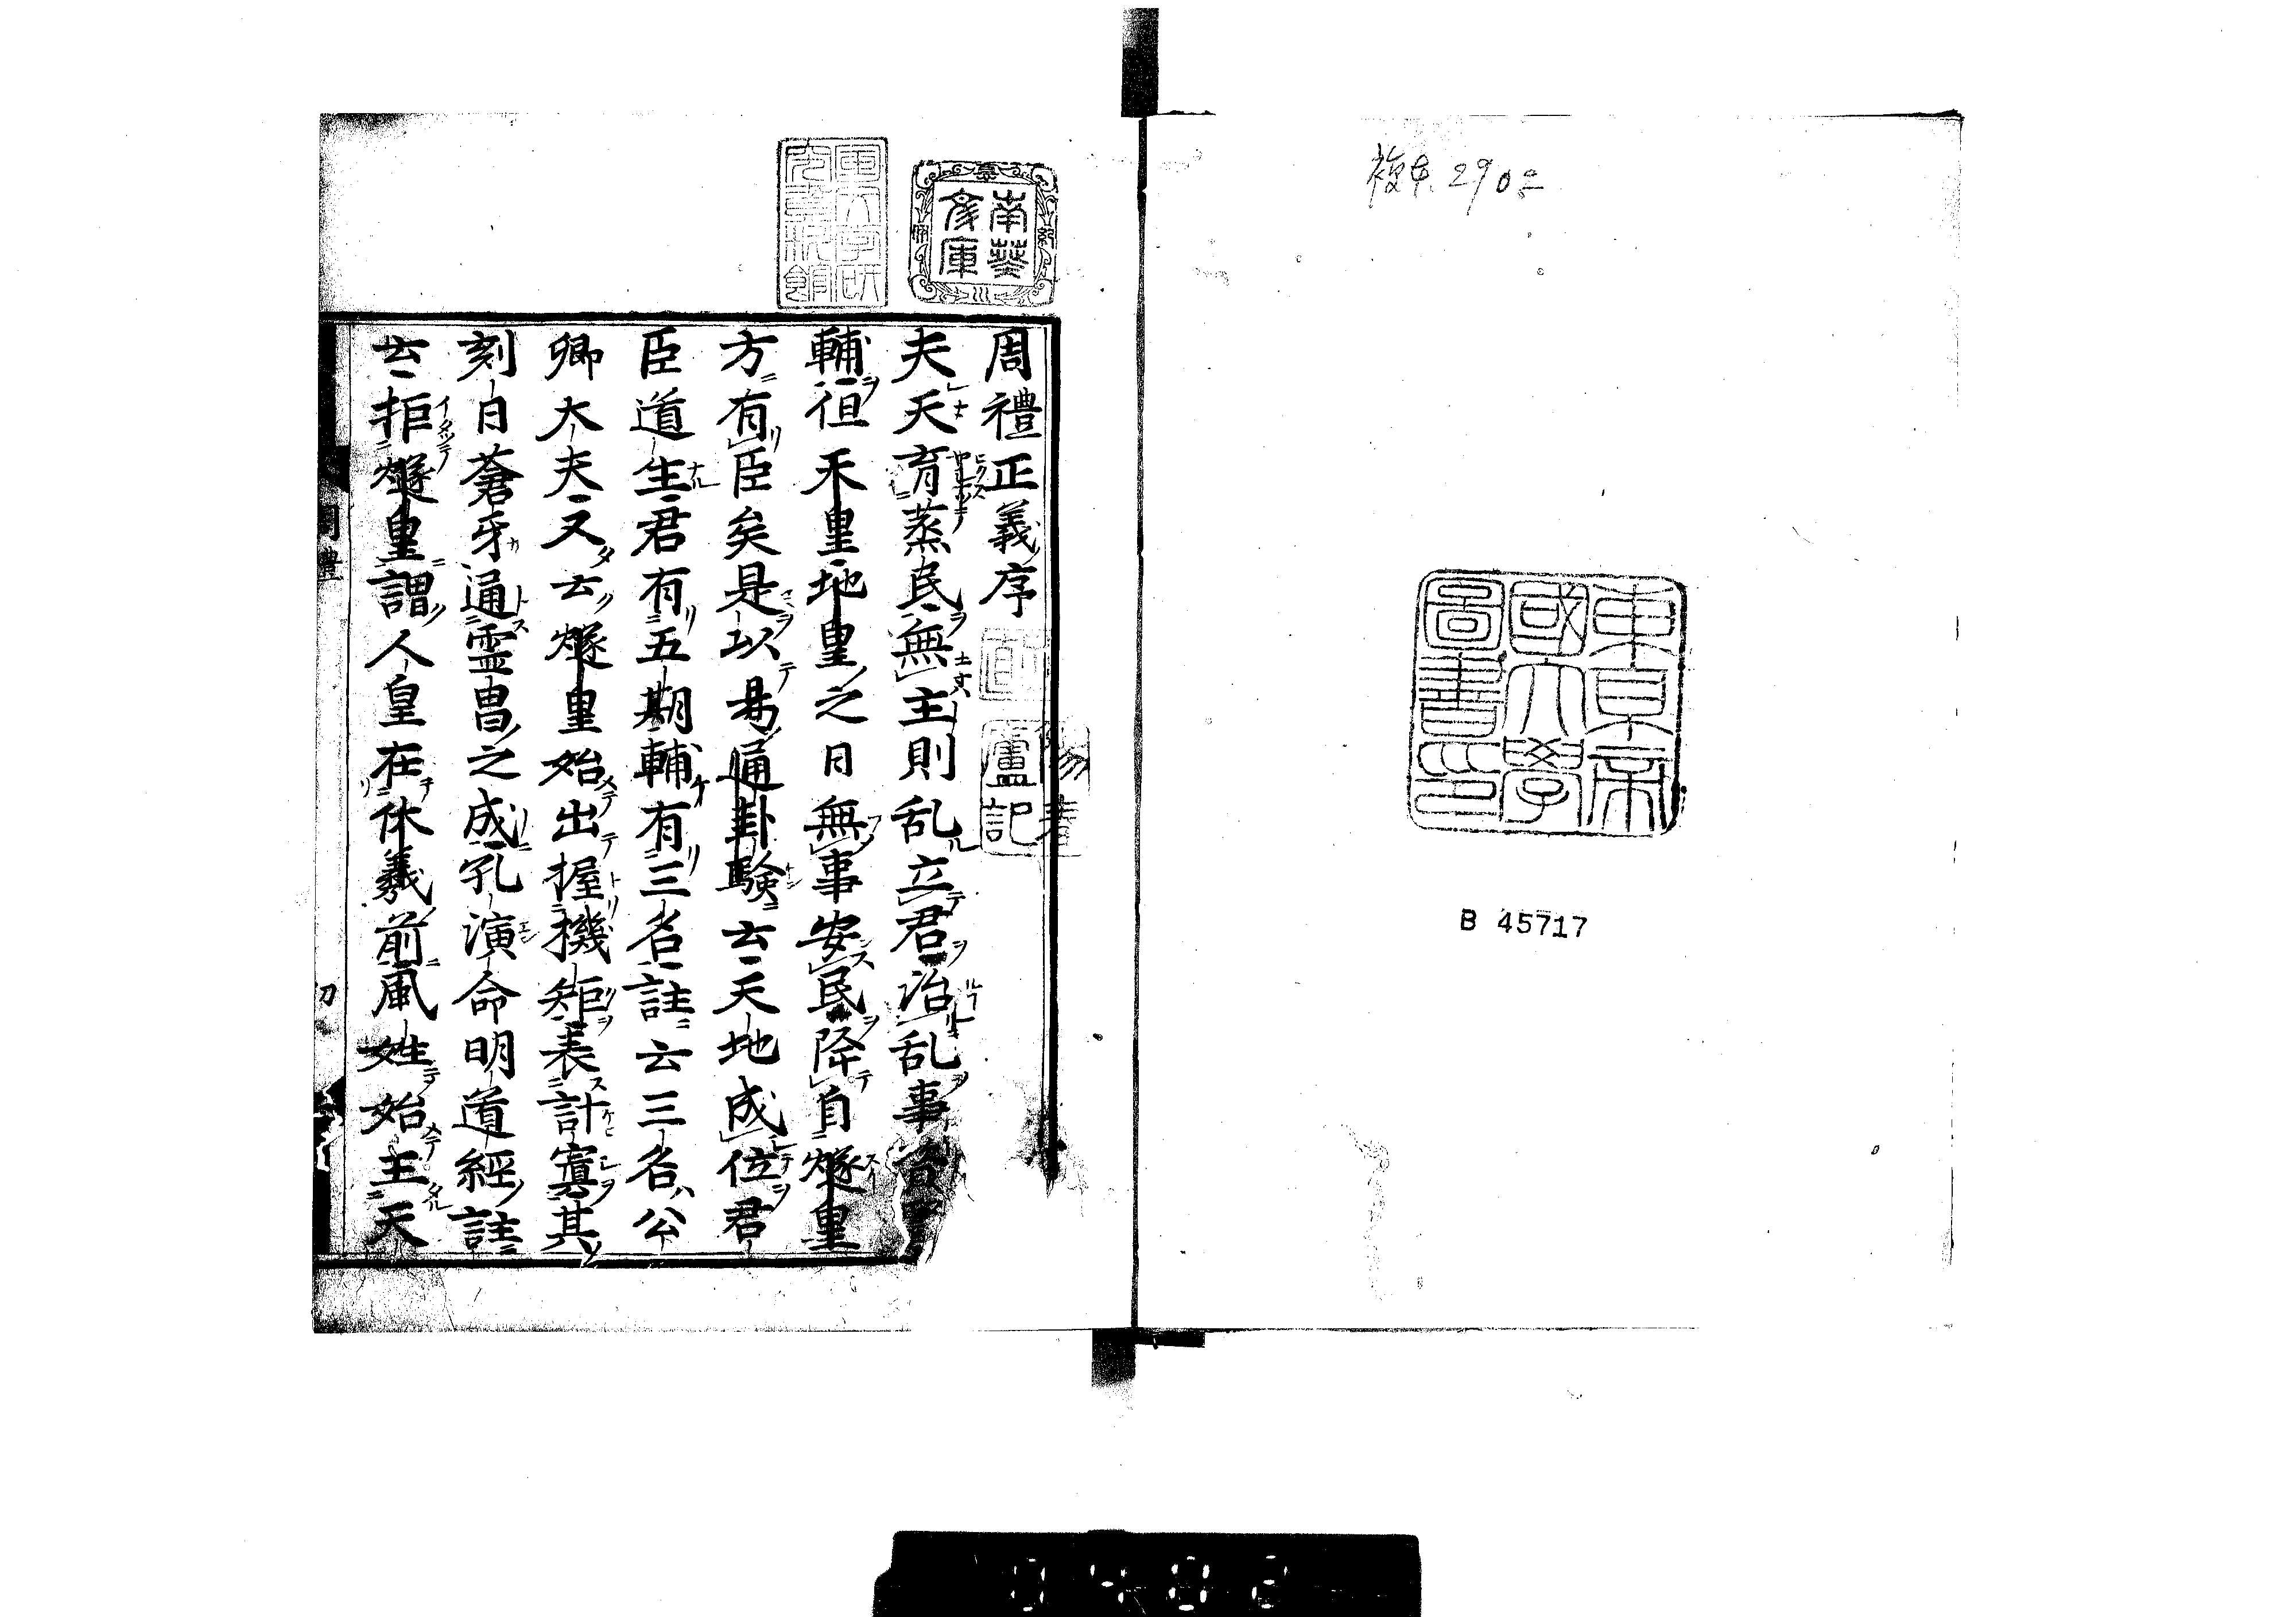 複本 290
東京帝
國大學
圖書印
B 45717
南葵
文庫
周禮正義序
夫天育蒸民無主則乱立君治乱事資
輔但天皇地皇之日無事安民降自燧皇
方有臣矣是以易通卦験云天地成位君
臣道生君有五期輔有三名註云三名公
卿大夫又云燧皇始出握機矩表計寘其
刻日蒼牙通霊昌之成孔演命明道經註
云拒燧皇謂人皇在伏羲前風姓始王天
周禮